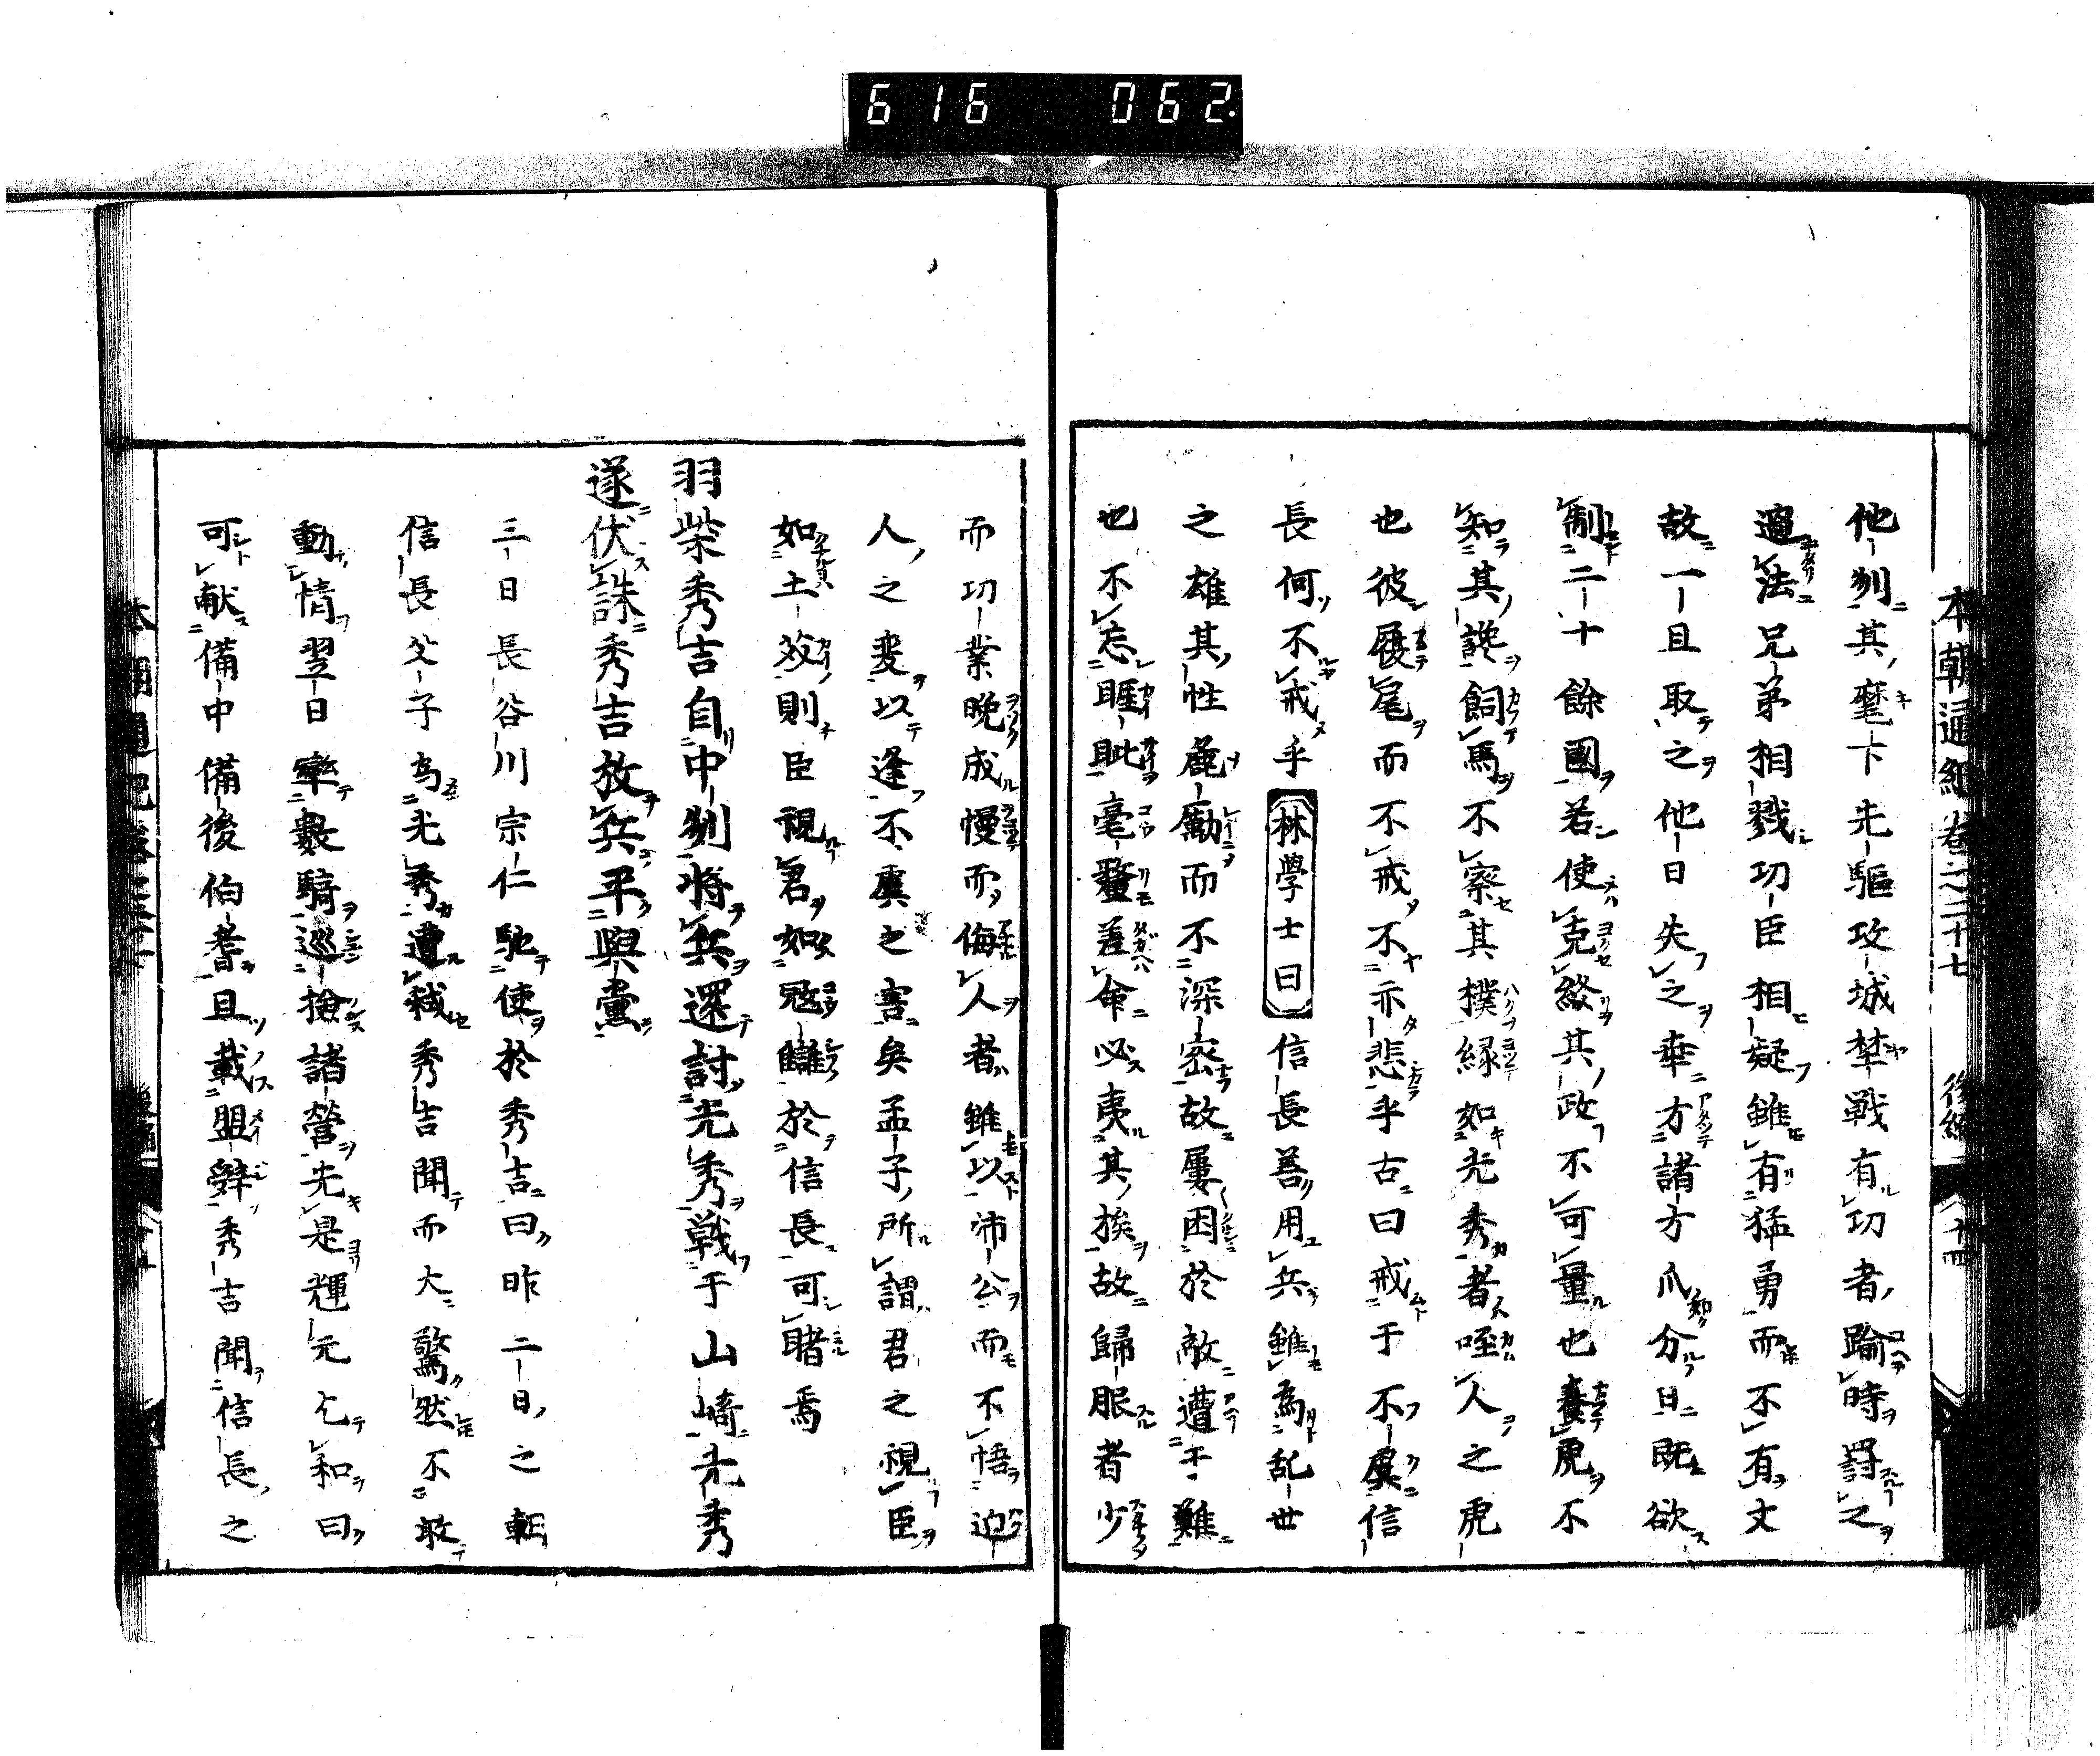 616 062
本朝通紀卷之二十七 後編 十四
他州其麾下先驅攻城埜戰有功者踰時罸之
過法兄弟相戮功臣相疑雖有猛勇而不有文
故一旦取之他日失之幸方諸方爪分旦既欲
制二十餘國若使克終其政不可量也養虎不
知其讒飼馬不察其撲緣如光秀者咥人之虎
也彼展尾而不戒不亦悲乎古曰戒于不虞信
長何不戒乎林學士曰信長善用兵雖為乱世
之雄其性麁勵而不深密故屢困於敵遭于難
也不忘睚眦毫釐差命必夷其族故歸服者少
而功業晚成慢而侮人者雖以沛公而不悟迫
人之変以逢不虞之害矣孟子所謂君之視臣
如土芥則臣視君如冦讎於信長可睹焉
羽柴秀吉自中州將兵還討光秀戰于山﨑光秀
遂伏誅秀吉放兵平與黨
三日長谷川宗仁馳使於秀吉曰昨二日之
信長父子為光秀遭弑秀吉聞而大驚然不敢
動情翌日率數騎巡檢諸營先是輝元乞和曰
可献備中備後伯耆且載盟辤秀吉聞信長之